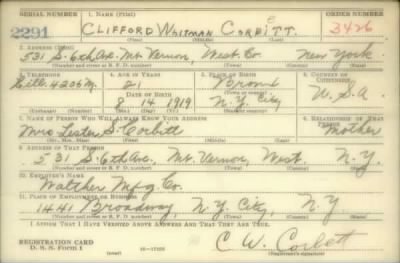 SERIAL NUMBER 1. NAME (Print) ORDER NUMBER
2291 CLIFFORD WHITMAN CORBETT. 3426
(First) (Middle) (Last)
2. ADDRESS (Print)
531 S. 6th Ave. Mt. Vernon, West. Co. New York.
(Number and street or R. F. D. number) (Town) (County) (State)
3. TELEPHONE 4. AGE IN YEARS 5. PLACE OF BIRTH 6. COUNTRY OF CITIZENSHIP
4206 M. 21 Bronx U.S.A
DATE OF BIRTH (Town or county)
8 14 1919 N.Y. City
(Exchange) (Number) (Mo.) (Day) (Yr.) (State or country)
7. NAME OF PERSON WHO WILL ALWAYS KNOW YOUR ADDRESS 8. RELATIONSHIP OF THAT PERSON
Mrs Lester S. Corbett Mother
(Mr., Mrs., Miss) (First) (Middle) (Last)
9. ADDRESS OF THAT PERSON
531 S. 6th Ave., Mt. Vernon, West. N.Y.
(Number and street or R. F. D. number) (Town) (County) (State)
10. EMPLOYER'S NAME
Walther Mfg Co.
11. PLACE OF EMPLOYMENT OR BUSINESS
1441 Broadway, N.Y. City, N.Y
(Number and street or R. F. D. number) (Town) (County) (State)
I AFFIRM THAT I HAVE VERIFIED ABOVE ANSWERS AND THAT THEY ARE TRUE.
REGISTRATION CARD
D. S. S. Form 1 C. W. Corbett
(over) (Registrant's signature)